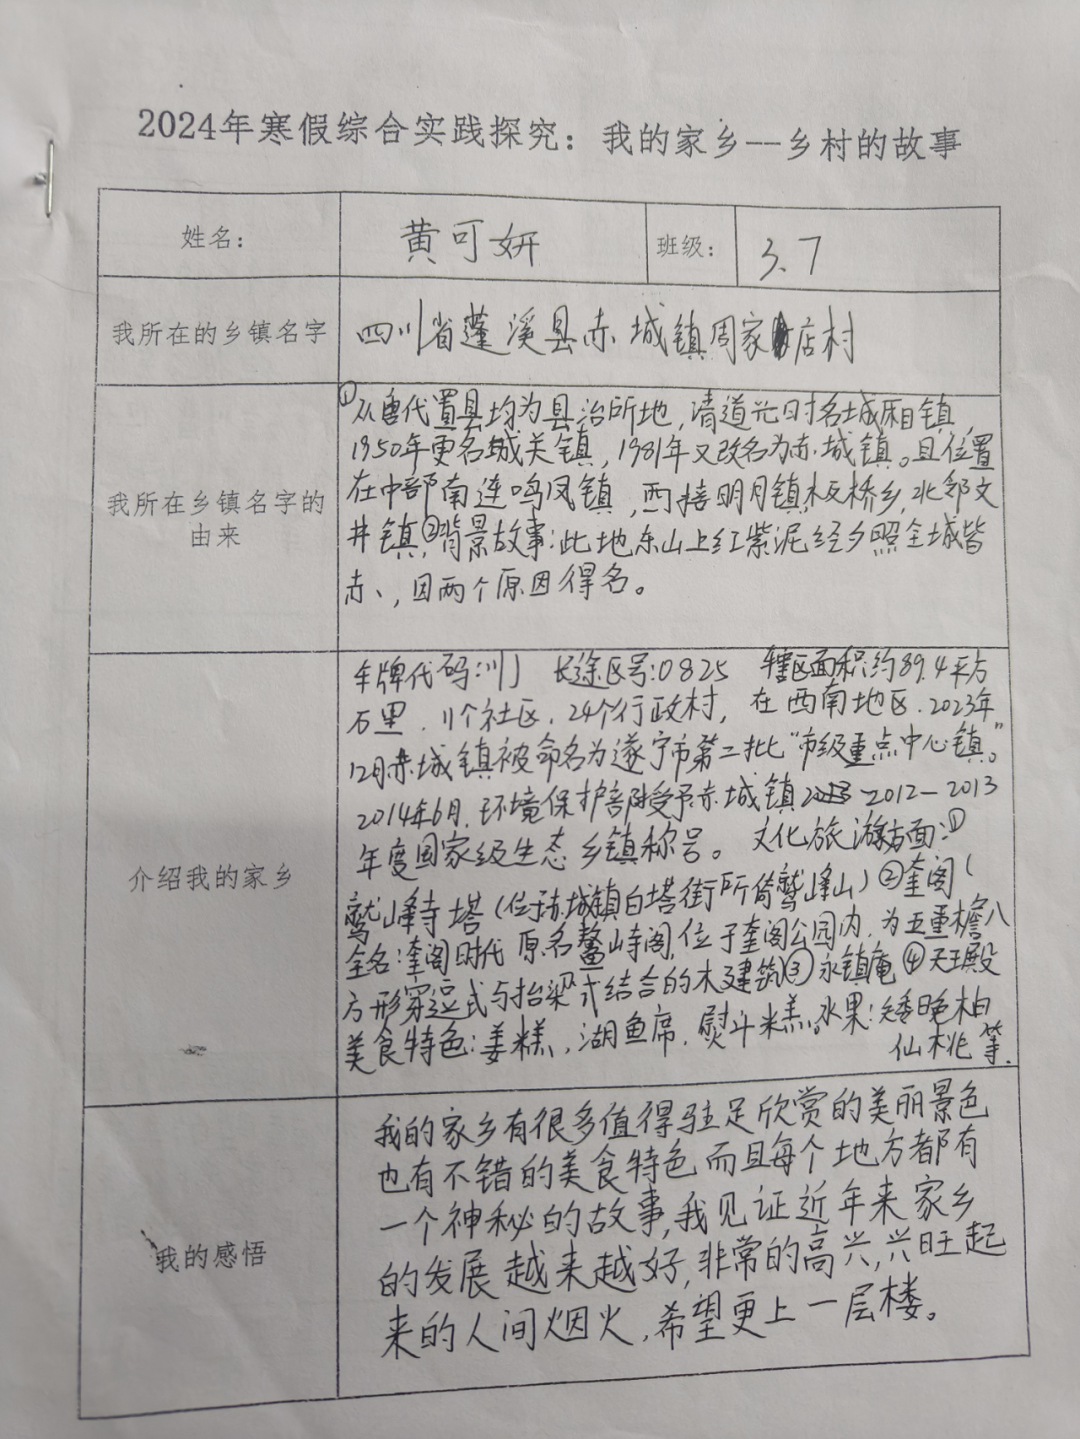 2024年寒假综合实践探究：我的家乡--乡村的故事
姓名：
黄可妍
班级：
3.7
我所在的乡镇名字
四川省蓬溪县赤城镇周家店村
我所在乡镇名字的
由来
①从唐代置县均为县治所地,清道光时名城厢镇,
1950年更名城关镇,1981年又改名为赤城镇。且位置
在中部南连鸣凤镇,西接明月镇板桥乡,北邻文
井镇,②背景故事:此地东山上红紫泥经夕照全城皆
赤、,因两个原因得名。
介绍我的家乡
车牌代码:川J 长途区号:0825 辖区面积约89.4平方
石里.11个社区.24个行政村,在西南地区.2023年
12月赤城镇被命名为遂宁市第二批“市级重点中心镇。”
2014年6月.环境保护部授予赤城镇2012—2013
年度国家级生态乡镇称号。文化旅游方面:①
鹫峰寺塔(位于赤城镇白塔街所倚鹫峰山)②奎阁(
全名:奎阁时代 原名鳌山寺阁,位于奎阁公园内.为五重檐八
方形穿逗式与抬梁式结合的木建筑)③永镇庵④天王殿
美食特色:姜糕、湖鱼席.熨斗米糕。水果:矮晚柚
仙桃等.
我的感悟
我的家乡有很多值得驻足欣赏的美丽景色
也有不错的美食特色而且每个地方都有
一个神秘的故事,我见证近年来家乡
的发展越来越好,非常的高兴,兴旺起
来的人间烟火,希望更上一层楼。